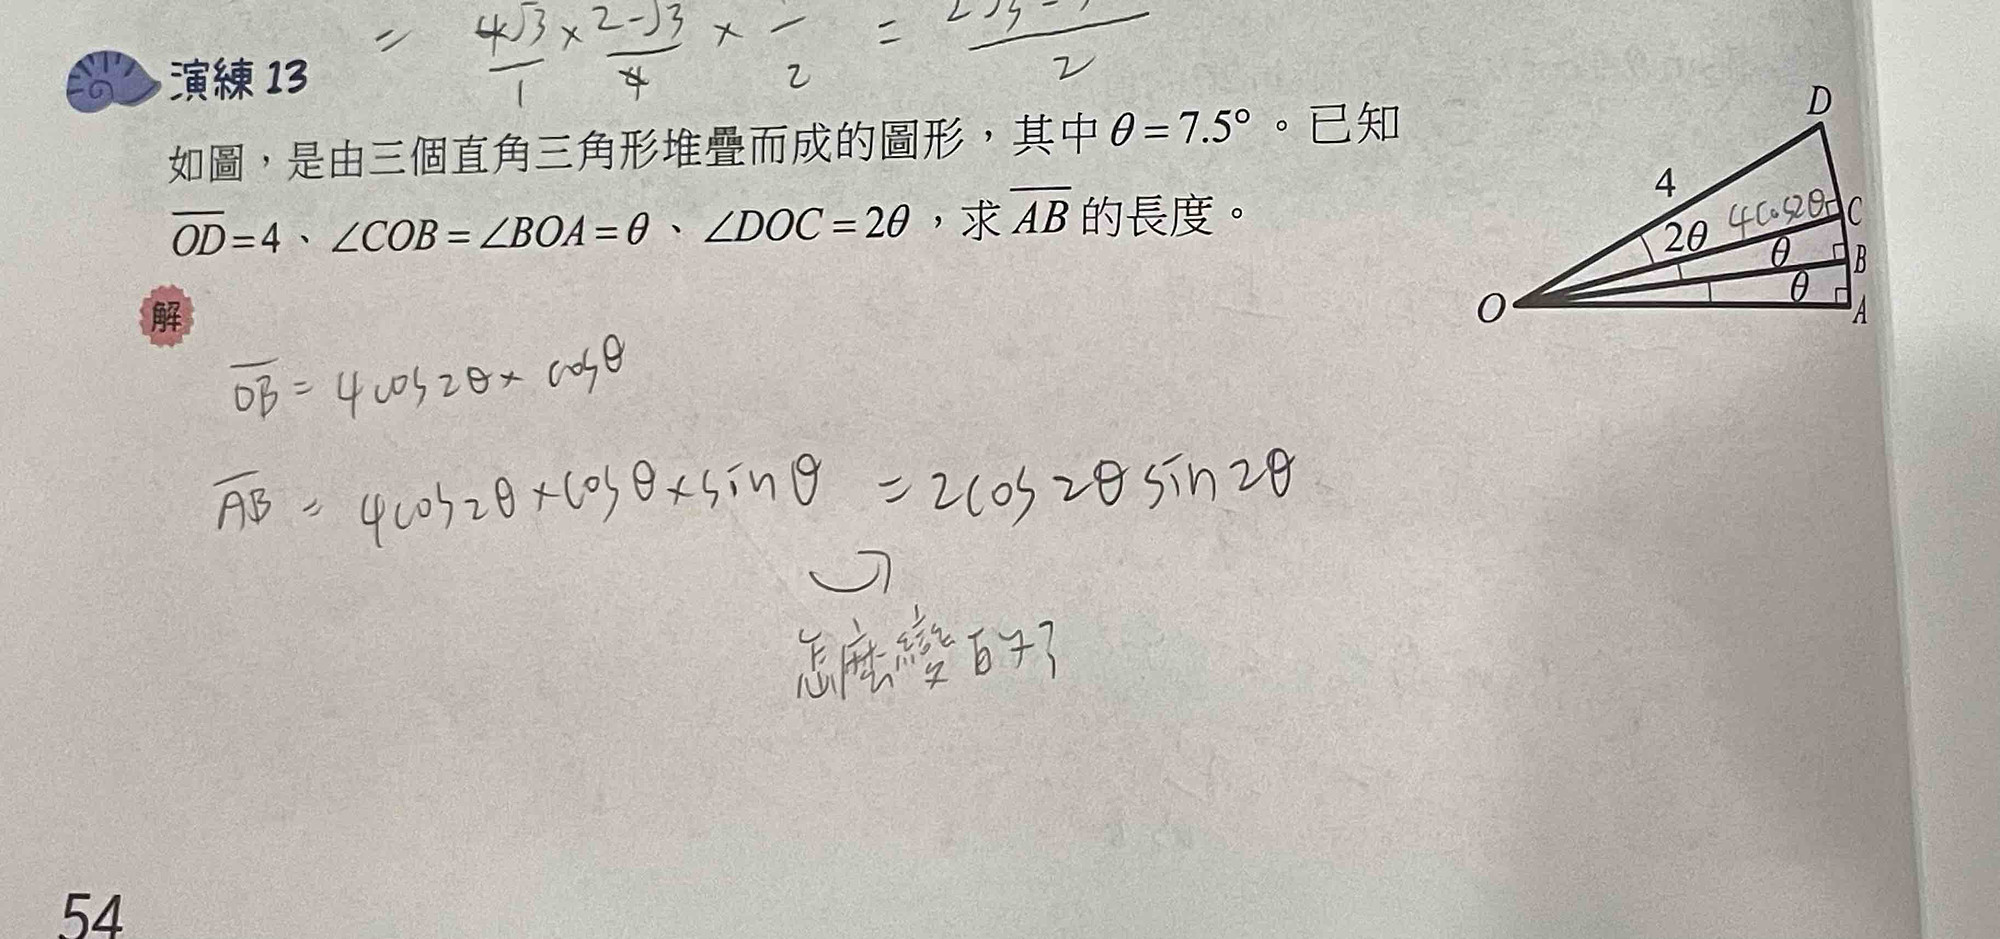 = 4√3/1 × 2-√3/4 × 1/2 =
演練 13
如圖，是由三個直角三角形堆疊而成的圖形，其中 θ = 7.5° 。已知
OD = 4、∠COB = ∠BOA = θ、∠DOC = 2θ，求 AB 的長度。
D
4
2θ
4cos2θ
C
θ
B
θ
O
A
解
OB = 4cos2θ × cosθ
AB = 4cos2θ × cosθ × sinθ = 2cos2θ sin2θ
怎麼變的?
54